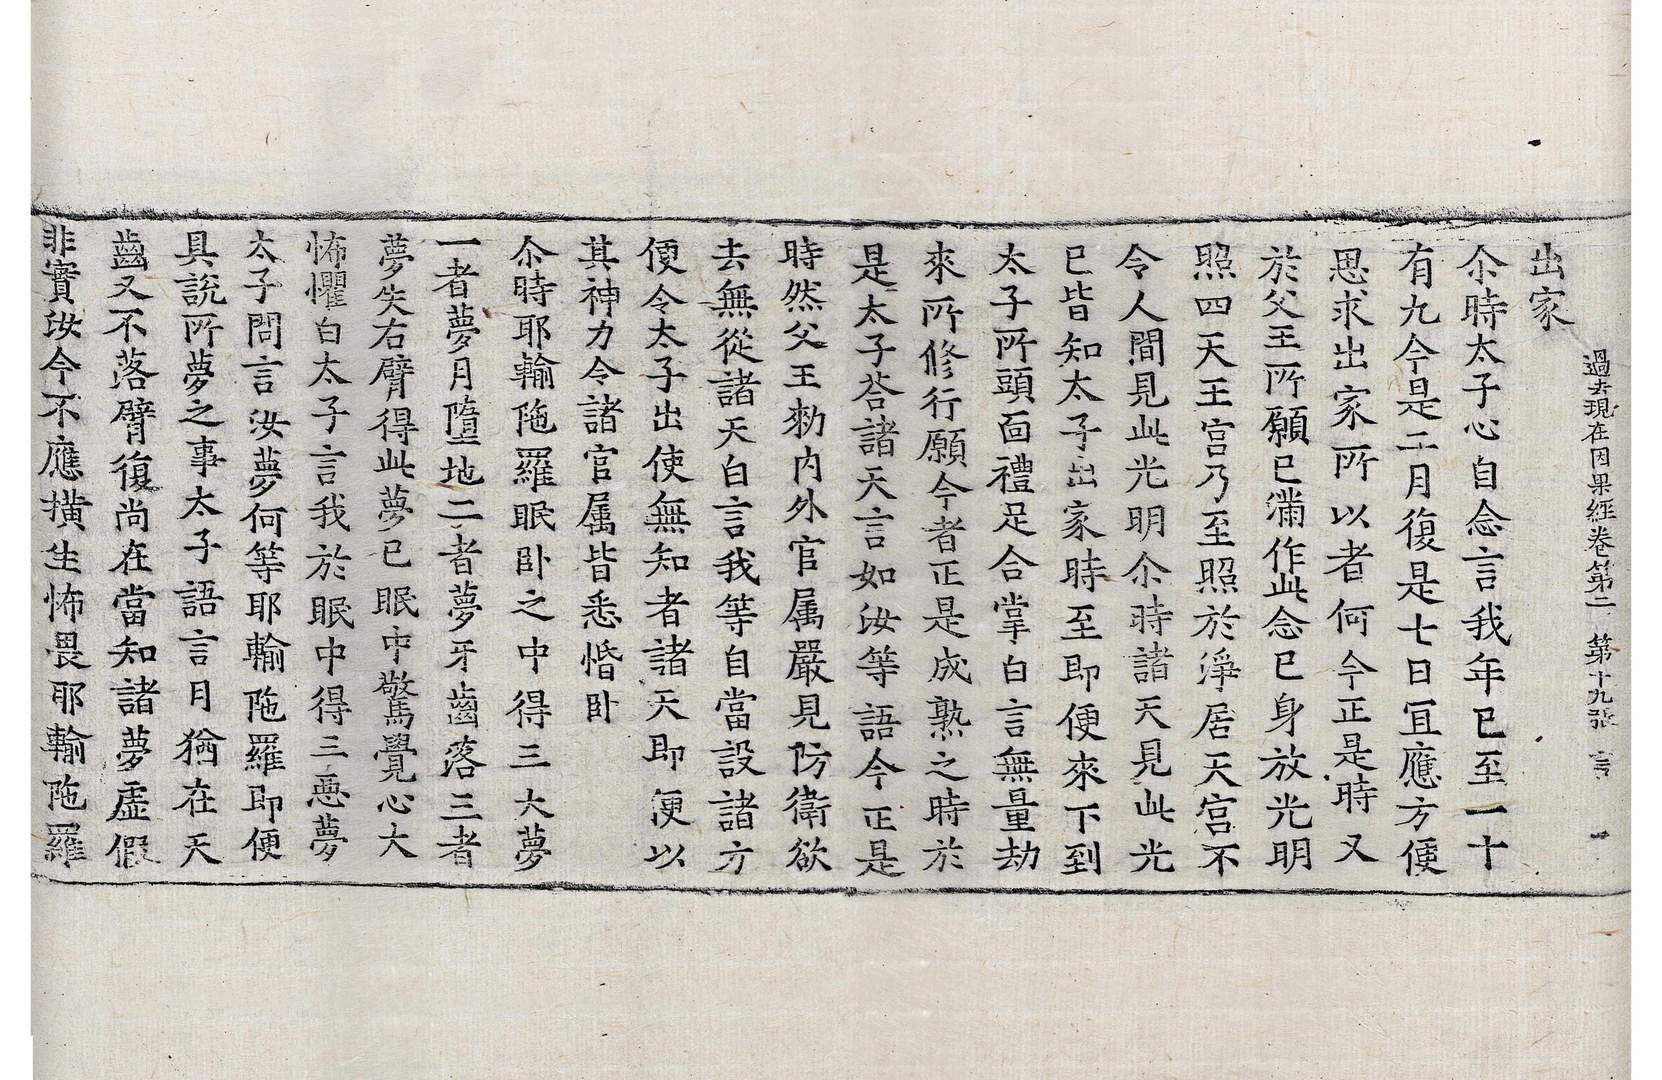 過去現在因果經卷第二 第十九張 言
出家
尒時太子心自念言我年已至一十
有九今是二月復是七日冝應方便
思求出家所以者何今正是時又
於父王所願已滿作此念已身放光明
照四天王宮乃至照於淨居天宮不
令人間見此光明尒時諸天見此光
已皆知太子出家時至即便來下到
太子所頭面禮足合掌白言無量劫
來所修行願今者正是成熟之時於
是太子荅諸天言如汝等語今正是
時然父王勑内外官属嚴見防衛欲
去無從諸天白言我等自當設諸方
便令太子出使無知者諸天即便以
其神力令諸官属皆悉惛卧
尒時耶輸陁羅眠卧之中得三大夢
一者夢月墮地二者夢牙齒落三者
夢失右臂得此夢已眠中驚覺心大
怖懼白太子言我於眠中得三惡夢
太子問言汝夢何等耶輸陁羅即便
具說所夢之事太子語言月猶在天
齒又不落臂復尚在當知諸夢虛假
非實汝今不應撗生怖畏耶輸陁羅